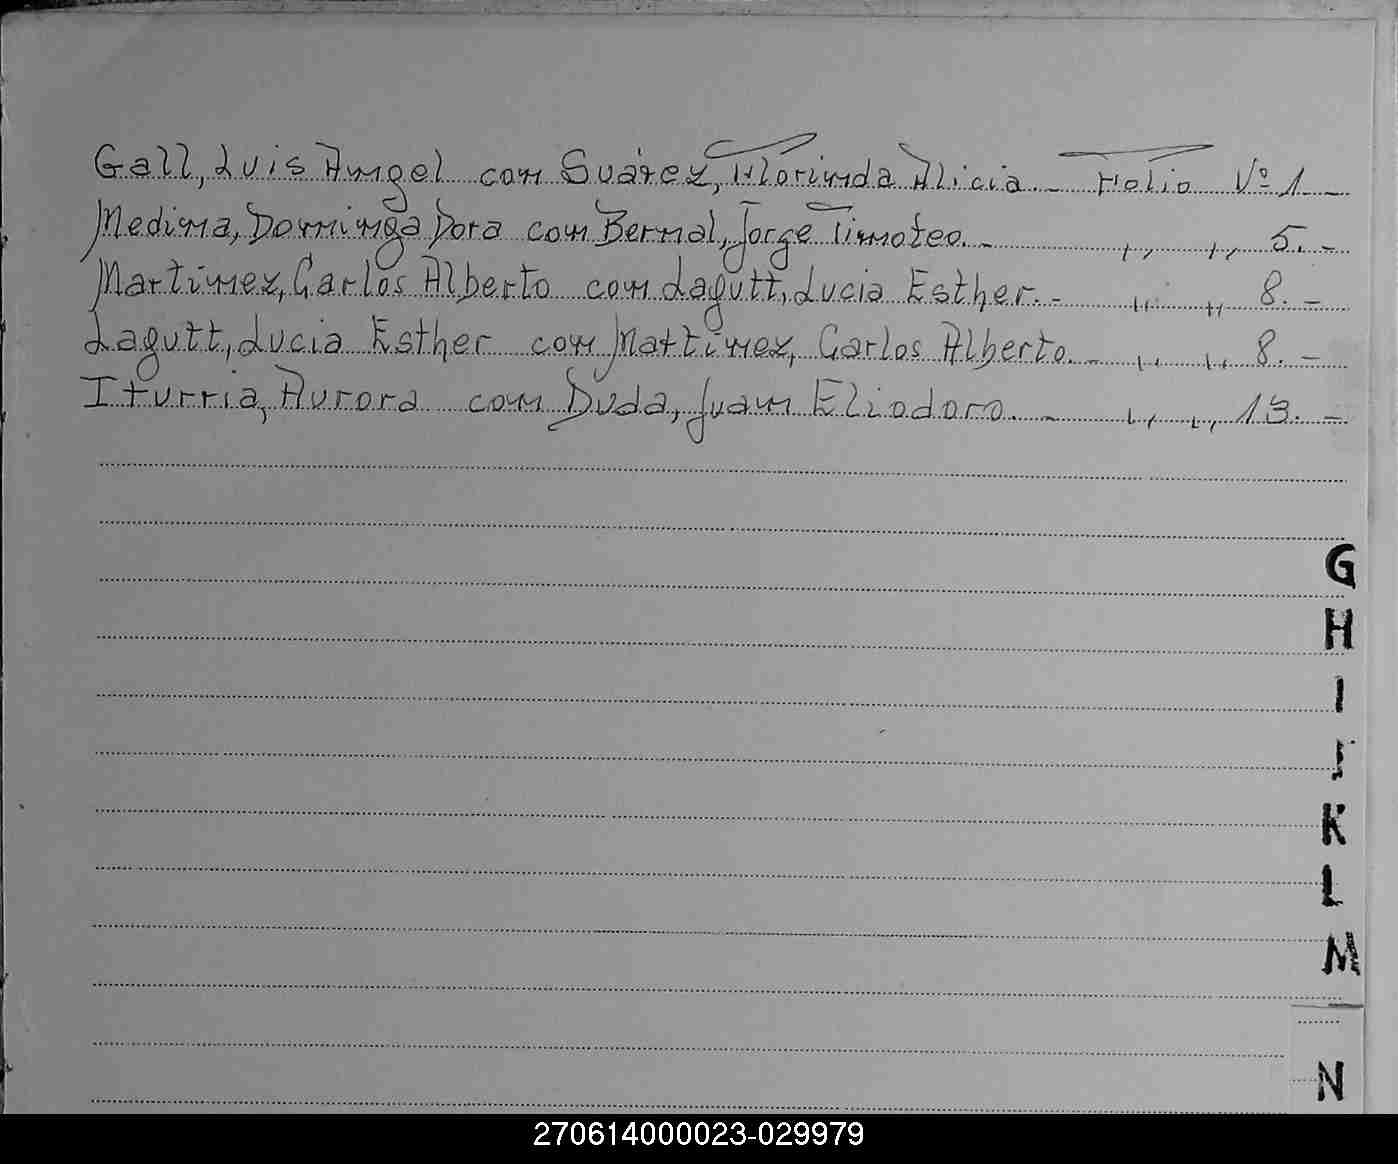 Gall, Luis Angel con Suárez, Florinda Alicia. - Folio Nº 1. -
Medina, Dominga Dora con Bernal, Jorge Timoteo. - ,, ,, 5. -
Martinez, Carlos Alberto con Lagutt, Lucia Esther. - ,, ,, 8. -
Lagutt, Lucia Esther con Martinez, Carlos Alberto. - ,, ,, 8. -
Iturria, Aurora con Duda, Juan Eliodoro. - ,, ,, 13. -
G
H
I
J
K
L
M
N
270614000023-029979